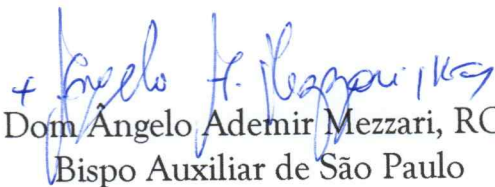 + Ângelo A. Mezzari, RCJ
Dom Ângelo Ademir Mezzari, RC
Bispo Auxiliar de São Paulo